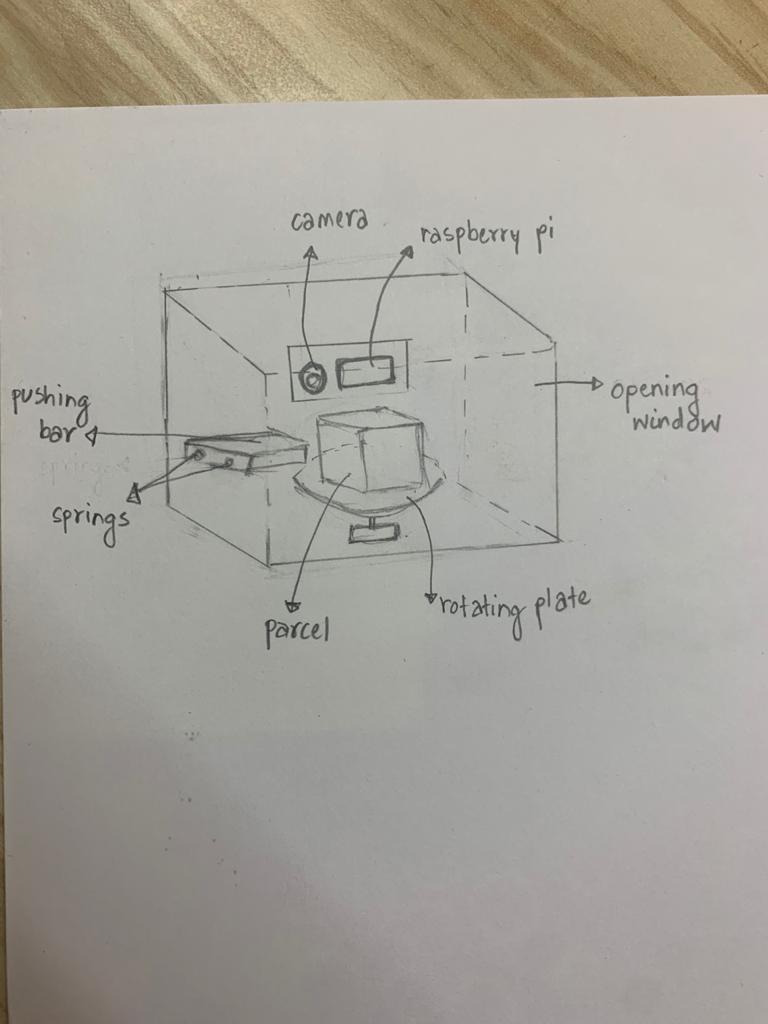 camera
raspberry pi
pushing
bar
opening
window
springs
springs
parcel
rotating plate